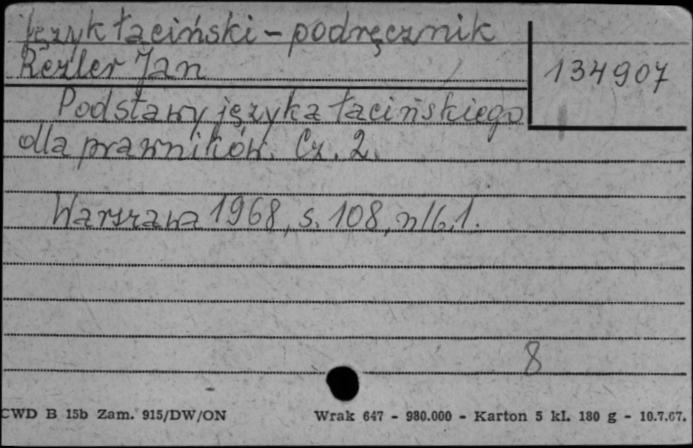 Język łaciński - podręcznik
Rezler Jan
134907
Podstawy języka łacińskiego
dla prawników. Cz. 2.
Warszawa 1968, s. 108, nlb. 1.
8
CWD B 15b Zam. 915/DW/ON
Wrak 647 - 980.000 - Karton 5 kl. 180 g - 10.7.67.